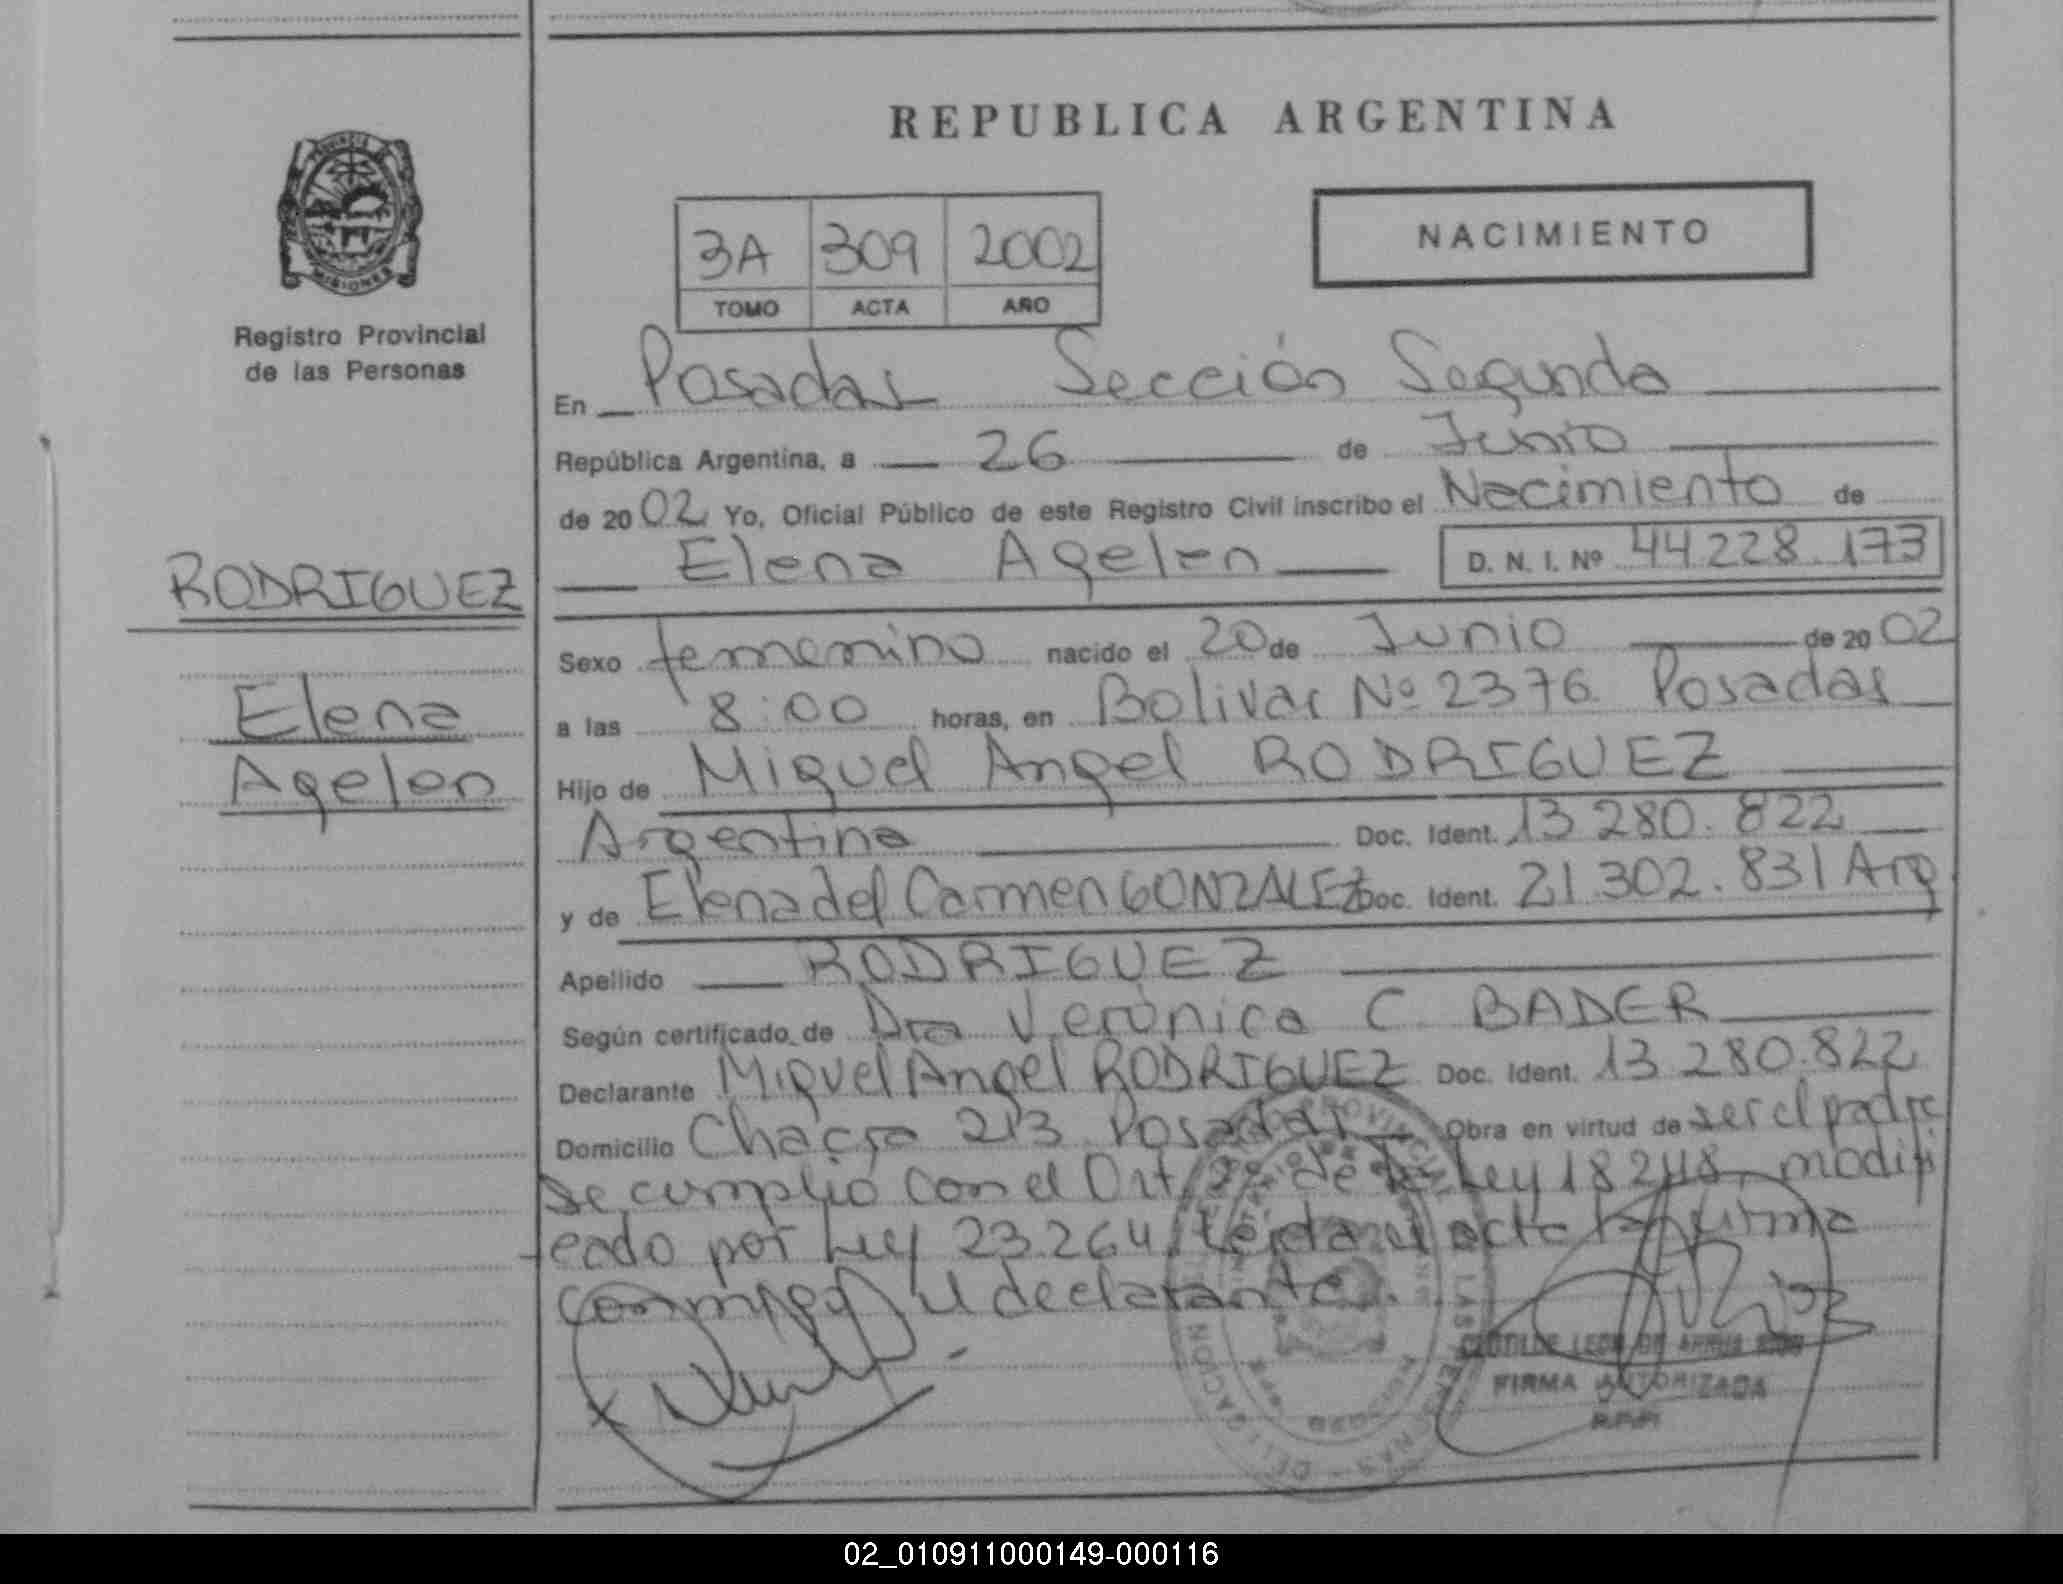 REPUBLICA ARGENTINA
PROVINCIA DE
MISIONES
Registro Provincial
de las Personas
NACIMIENTO
3A 309 2002
TOMO ACTA AÑO
En Posadas Sección Segunda
República Argentina, a 26 de Junio
de 2002 Yo, Oficial Público de este Registro Civil inscribo el Nacimiento de
Elena Agelen D. N. I. Nº 44.228.173
RODRIGUEZ
Elena
Agelen
Sexo femenino nacido el 20 de Junio de 2002
a las 8:00 horas, en Bolivar Nº 2376 Posadas
Hijo de Miguel Angel RODRIGUEZ
Argentina Doc. Ident. 13.280.822
y de Elena del Carmen GONZALEZ Doc. Ident. 21.302.831 Arg
Apellido RODRIGUEZ
Según certificado de Dra Verónica C. BADER
Declarante Miguel Angel RODRIGUEZ Doc. Ident. 13.280.822
Domicilio Chacra 213 Posadas Obra en virtud de ser el padre
Se cumplió con el Art. de la Ley 18248, modifi
cado por Ley 23.264 leida el acta la firma
conmigo el declarante.
CLOTILDE LEON DE
FIRMA AUTORIZADA
R.P.P.
02_010911000149-000116